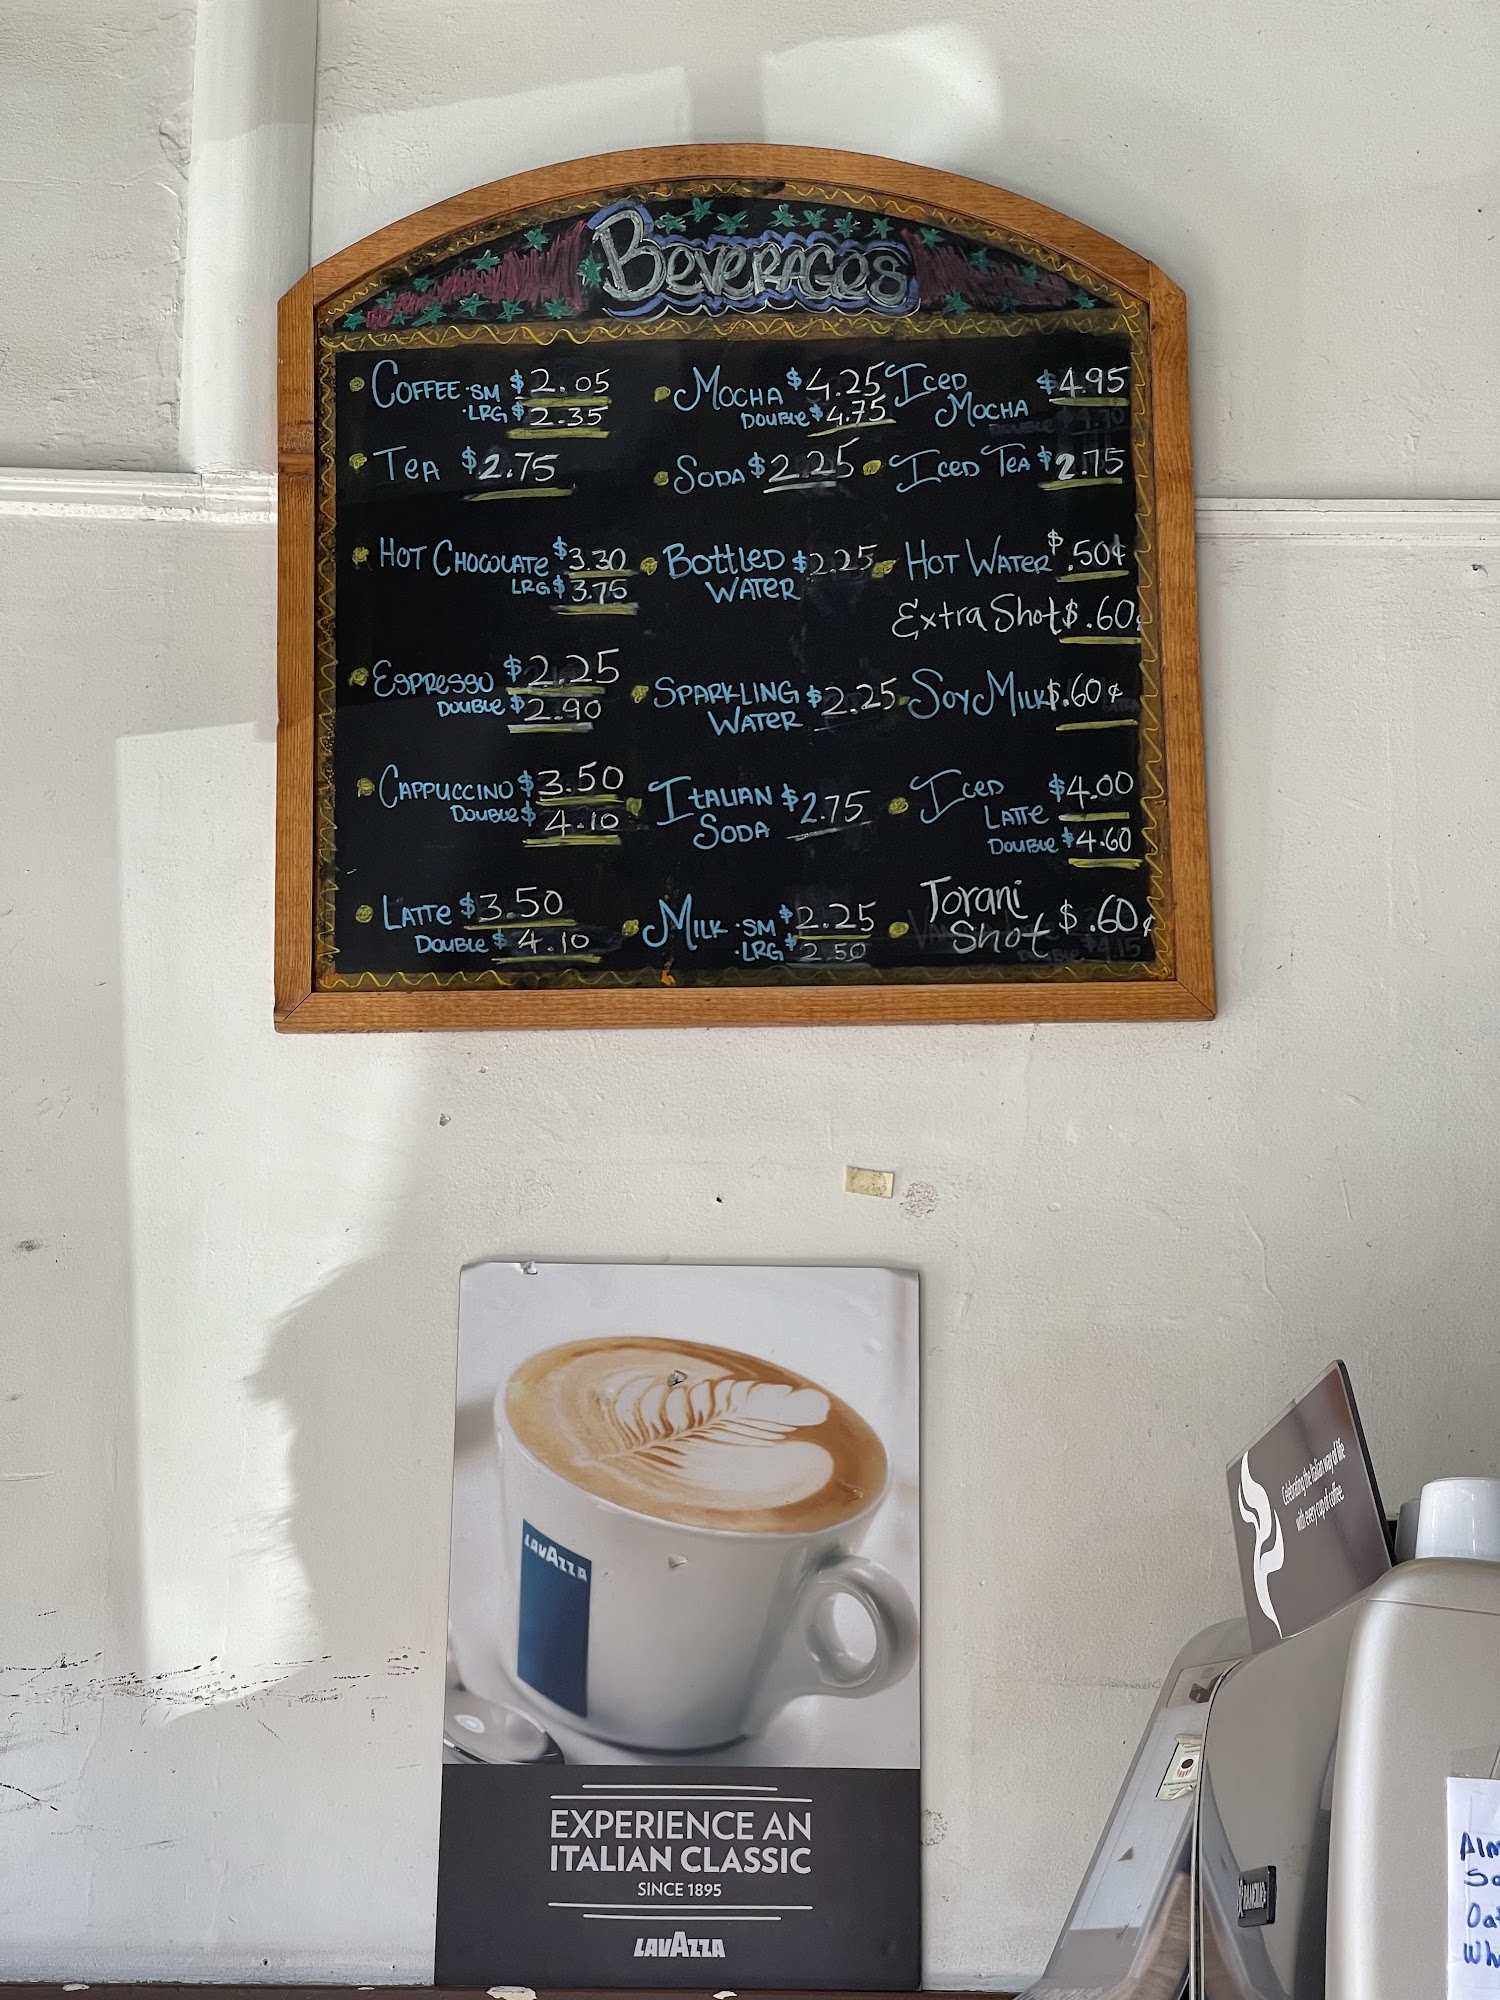 Beverages
Coffee · SM $2.05
· LRG $2.35
Tea $2.75
Hot Chocolate $3.30
LRG $3.75
Espresso $2.25
Double $2.90
Cappuccino $3.50
Double $4.10
Latte $3.50
Double $4.10
Mocha $4.25
Double $4.75
Soda $2.25
Bottled $2.25
Water
Sparkling $2.25
Water
Italian $2.75
Soda
Milk · SM $2.25
· LRG $2.50
Iced $4.95
Mocha
Iced Tea $2.75
Hot Water $.50¢
Extra Shot $.60¢
Soy Milk $.60¢
Iced $4.00
Latte
Double $4.60
Torani $.60¢
Shot
LAVAZZA
EXPERIENCE AN
ITALIAN CLASSIC
SINCE 1895
LAVAZZA
Celebrating the Italian way of life
with every cup of coffee.